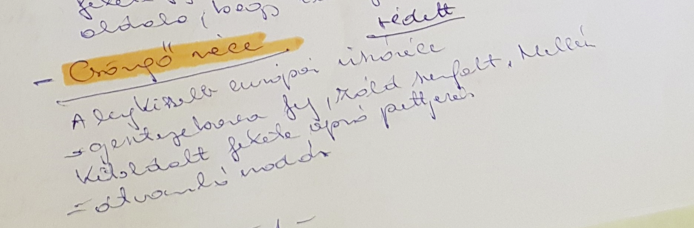 oldala,
védett
- Csörgő réce
A legkisebb európai úszóréce
→ gesztenyebarna fej, zöld szemfolt, Mellén
Kétoldalt fekete apró pettyezés
= átvonuló madár